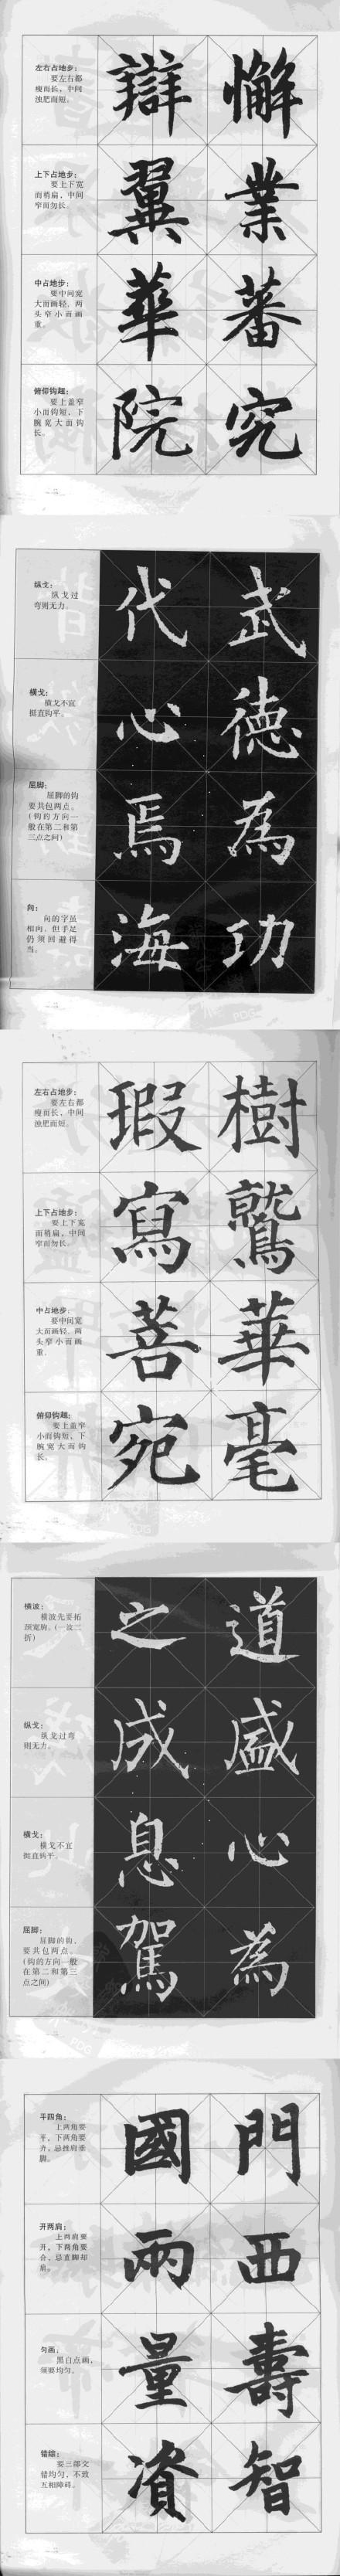 左右占地步：
要左右都
瘦而长，中间
浊肥而短。
辯 懈
上下占地步：
要上下宽
而稍扁，中间
窄而勿长。
翼 業
中占地步：
要中间宽
大而画轻，两
头窄小而画
重。
華 蕃
俯仰钩趯：
要上盖窄
小而钩短，下
腕宽大而钩
长。
院 究
纵戈：
纵戈过
弯则无力。
代 武
横戈：
横戈不宜
挺直钩平。
心 德
屈脚：
屈脚的钩
要共包两点。
(钩的方向一
般在第二和第
三点之间)
焉 為
向：
向的字虽
相向，但手足
仍须回避得
当。
海 功
左右占地步：
要左右都
瘦而长，中间
浊肥而短。
瑕 樹
上下占地步：
要上下宽
而稍扁，中间
窄而勿长。
寫 鷲
中占地步：
要中间宽
大而画轻，两
头窄小而画
重。
菩 華
俯仰钩趯：
要上盖窄
小而钩短，下
腕宽大而钩
长。
宛 毫
横波：
横波先要拓
颈宽胸。(一波三
折)
之 道
纵戈：
纵戈过弯
则无力。
成 盛
横戈：
横戈不宜
挺直钩平。
息 心
屈脚：
屈脚的钩，
要共包两点。
(钩的方向一般
在第二和第三
点之间)
駕 為
平四角：
上两角要
平，下两角要
齐，忌挫肩垂
脚。
國 門
开两肩：
上两肩要
开，下两角要
合，忌直脚却
肩。
兩 西
匀画：
黑白点画，
须要均匀。
量 壽
错综：
要三部交
错均匀，不致
互相障碍。
資 智